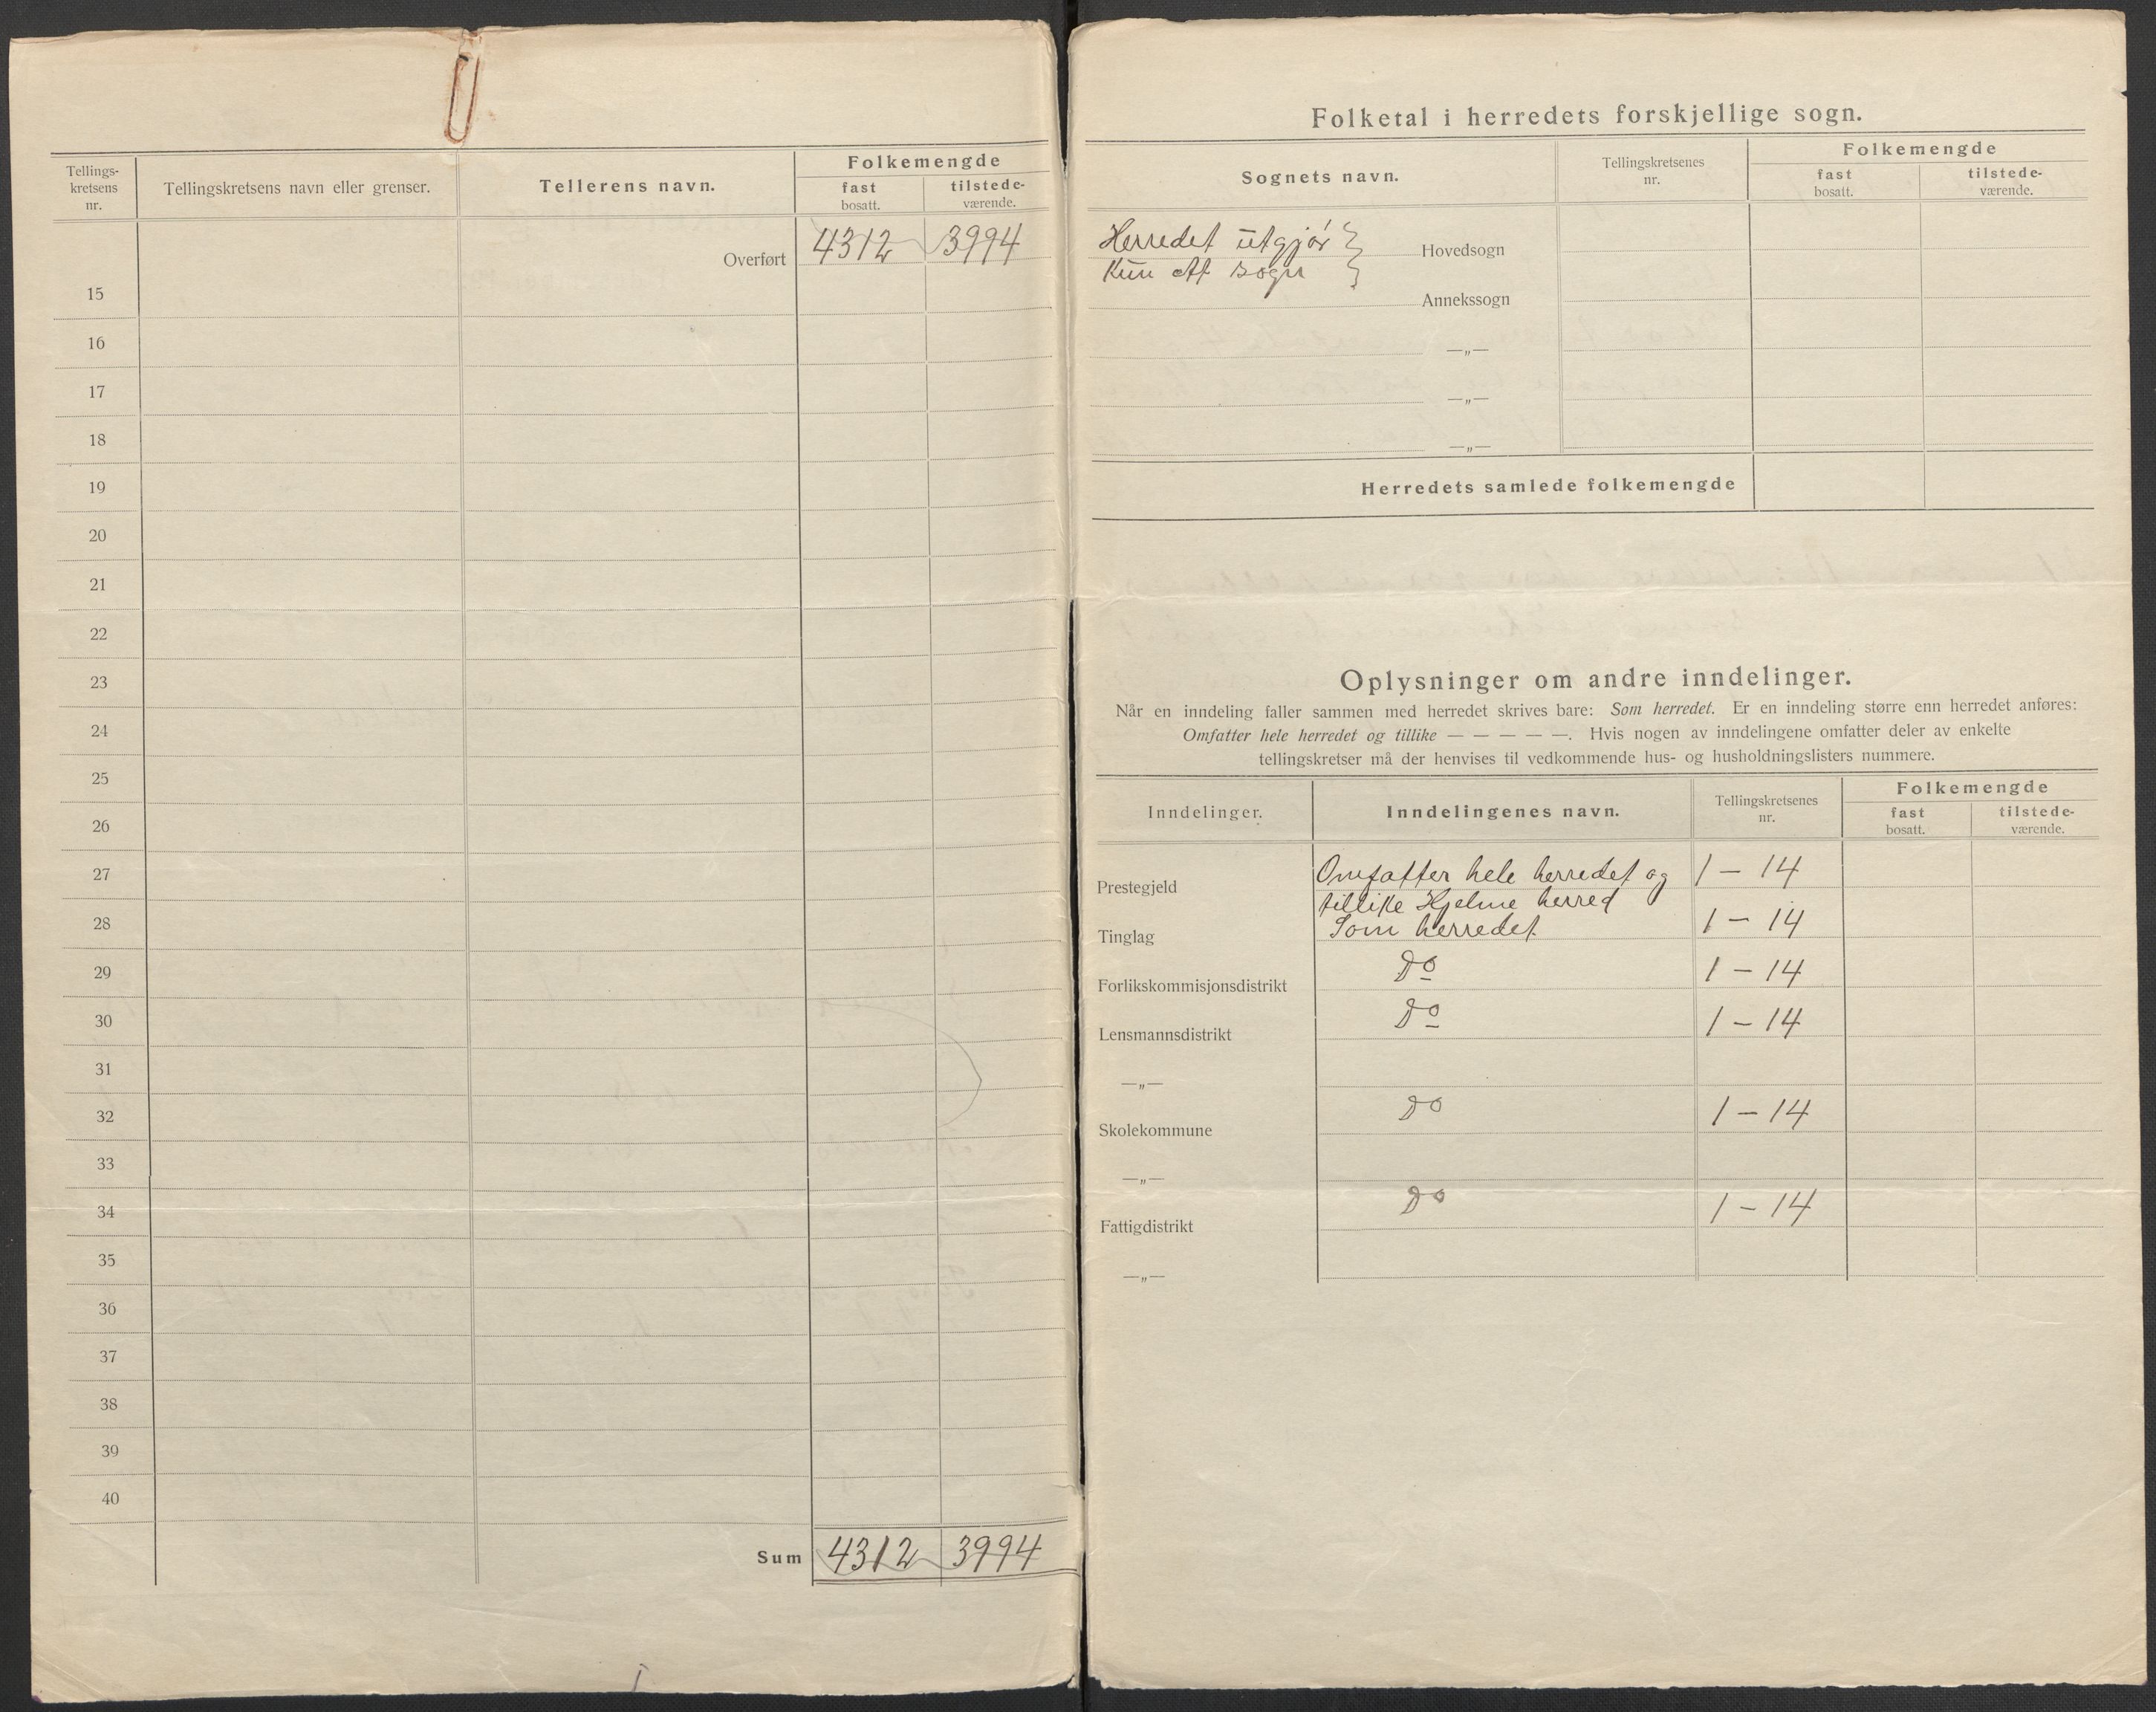 Tellings-
kretsens
nr.
Tellingskretsens navn eller grenser.
Tellerens navn.
Folkemengde
fast
bosatt.
tilstede-
værende.
Overført 4312 3994
15
16
17
18
19
20
21
22
23
24
25
26
27
28
29
30
31
32
33
34
35
36
37
38
39
40
Sum 4312 3994
Folketal i herredets forskjellige sogn.
Sognets navn.
Tellingskretsenes
nr.
Folkemengde
fast
bosatt.
tilstede-
værende.
Herredet utgjør
Hovedsogn
kun ett sogn
Annekssogn
—„—
—„—
—„—
Herredets samlede folkemengde
Oplysninger om andre inndelinger.
Når en inndeling faller sammen med herredet skrives bare: Som herredet. Er en inndeling større enn herredet anføres:
Omfatter hele herredet og tillike — — — — —. Hvis nogen av inndelingene omfatter deler av enkelte
tellingskretser må der henvises til vedkommende hus- og husholdningslisters nummere.
Inndelinger.
Inndelingenes navn.
Tellingskretsenes
nr.
Folkemengde
fast
bosatt.
tilstede-
værende.
Prestegjeld Omfatter hele herredet og 1 — 14
tillike Hjelme herred
Tinglag Som herredet 1 — 14
Forlikskommisjonsdistrikt Do 1 — 14
Lensmannsdistrikt Do 1 — 14
—„—
Skolekommune Do 1 — 14
—„—
Fattigdistrikt Do 1 — 14
—„—